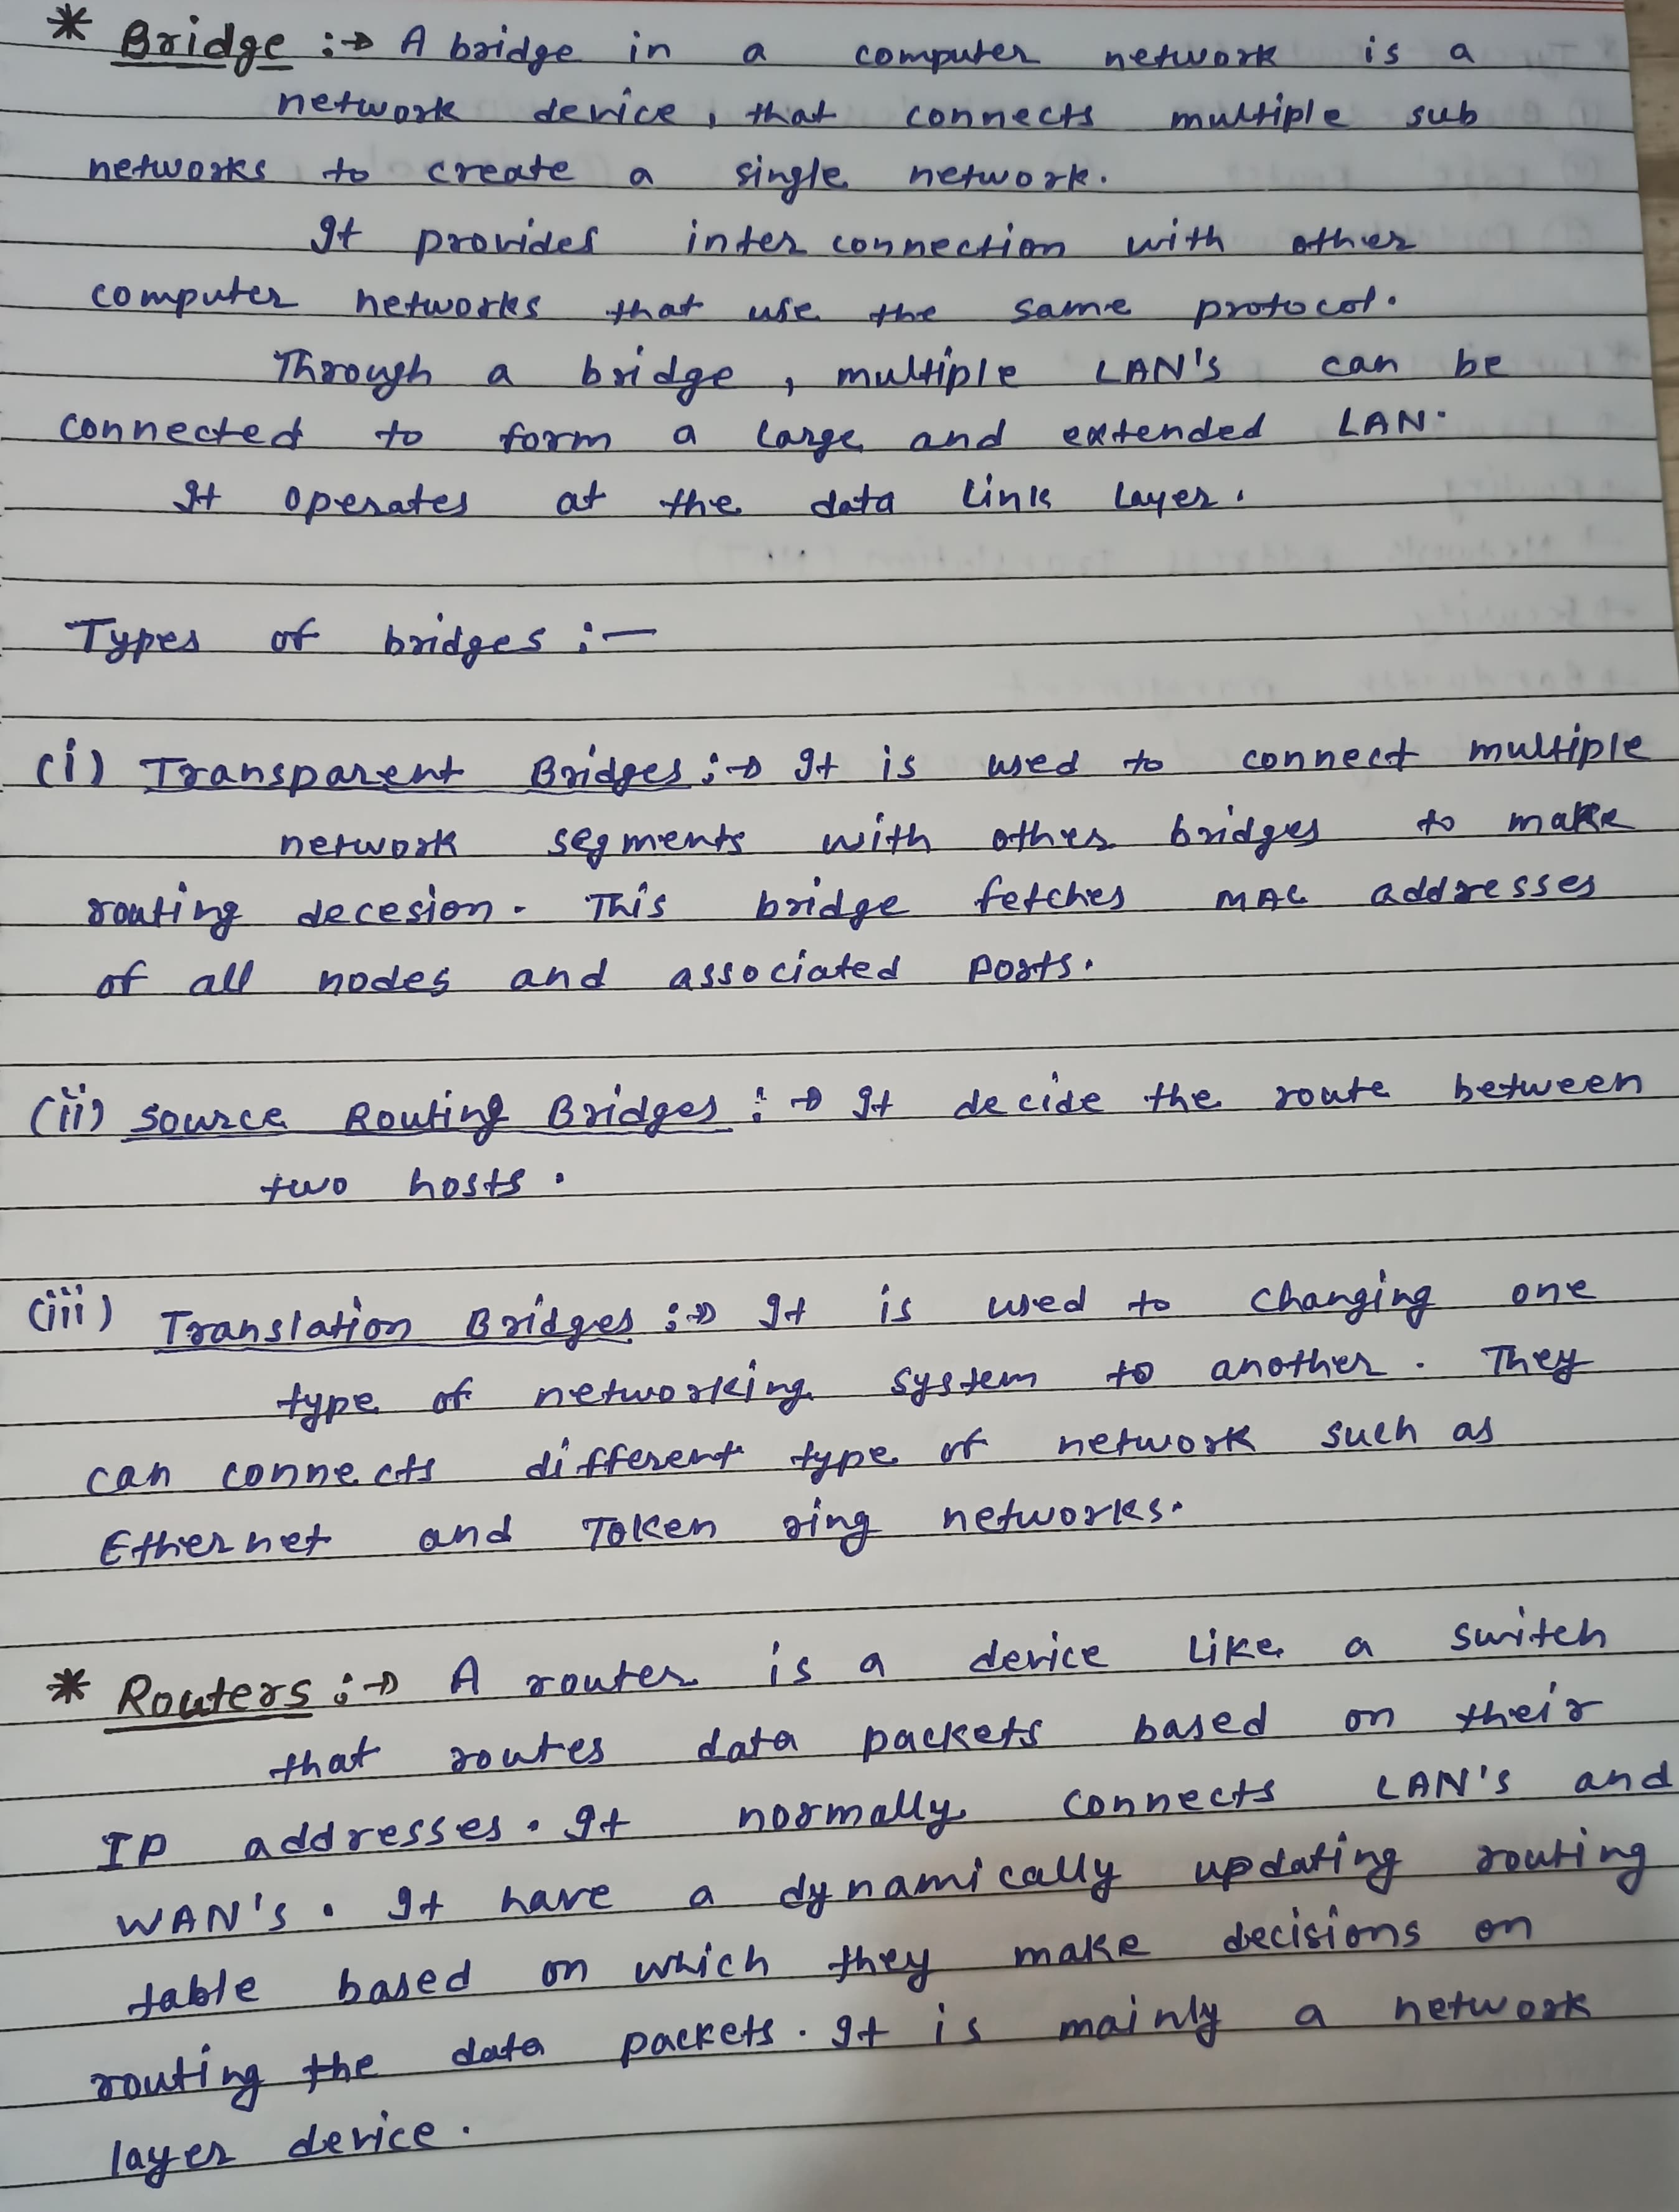 * Bridge :→ A bridge in a computer network is a
network device, that connects multiple sub
networks to create a single network.
It provides inter connection with other
computer networks that use the same protocol.
Through a bridge, multiple LAN's can be
connected to form a large and extended LAN.
It operates at the data link layer.
Types of bridges :—
(i) Transparent Bridges :→ It is used to connect multiple
network segments with other bridges to make
routing decesion. This bridge fetches MAC addresses
of all nodes and associated ports.
(ii) Source Routing Bridges :→ It decide the route between
two hosts.
(iii) Translation Bridges :→ It is used to changing one
type of networking system to another. They
can connects different type of network such as
Ethernet and Token ring networks.
* Routers :→ A router is a device like a switch
that routes data packets based on their
IP addresses. It normally connects LAN's and
WAN's. It have a dynamically updating routing
table based on which they make decisions on
routing the data packets. It is mainly a network
layer device.